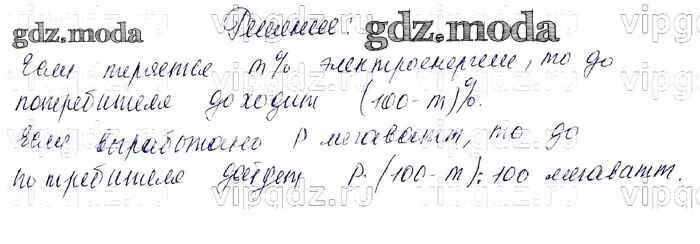 Решение:
gdz.moda gdz.moda
Если теряется m% электроенергии, то до
потребителя доходит (100-m)%.
Если выработано P мегаватт, то до
потребителя дойдет P·(100-m):100 мегаватт.